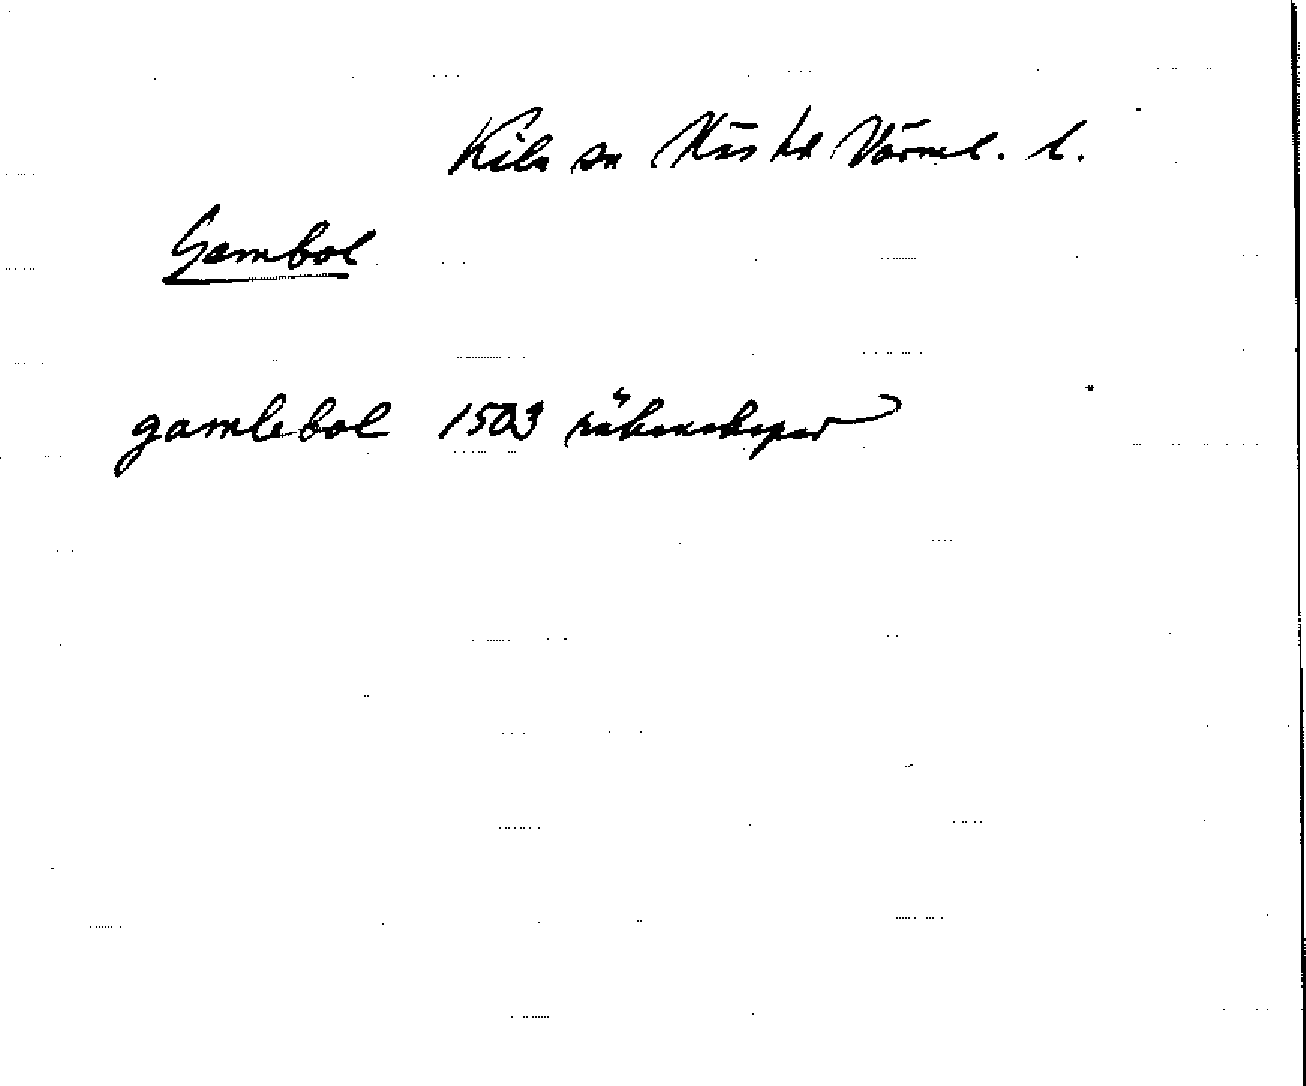 Kila sn Näs hd Värml. l.
Gambol
gamlebol 1503 räkenskaper